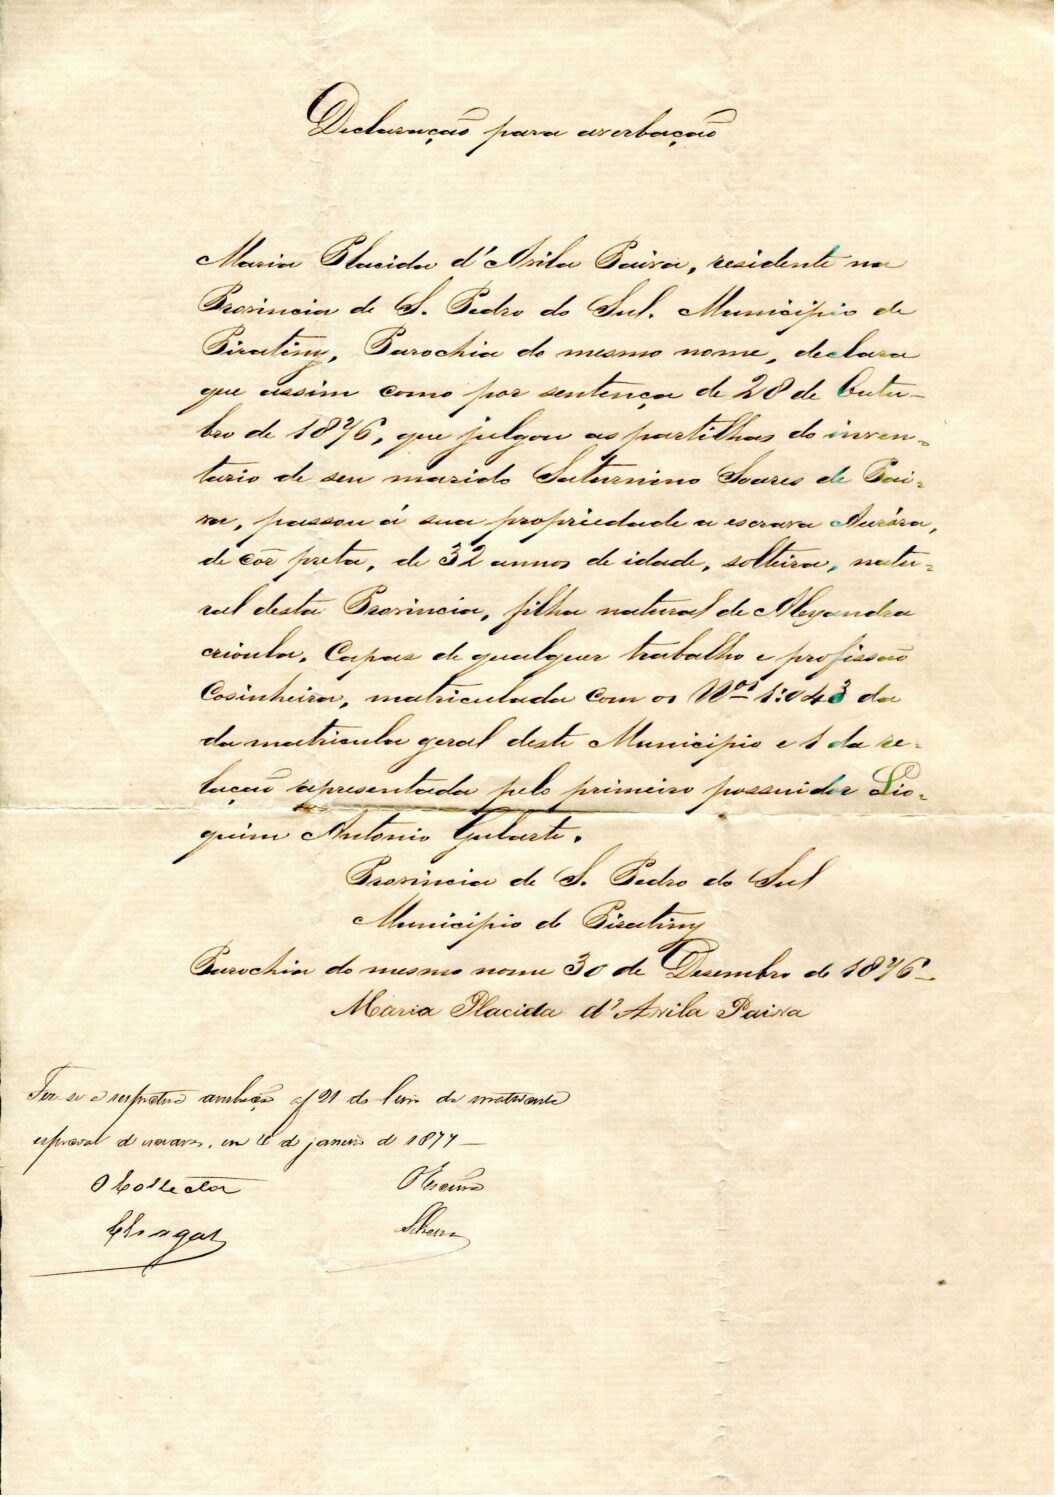 Declaração para averbação
Maria Placida d'Avila Paiva, residente na
Provincia de S. Pedro do Sul. Municipio de
Piratiny, Parochia do mesmo nome, declara
que assim como por sentença de 28 de Outu-
bro de 1876, que julgou as partilhas do inven-
tario de seu marido Saturnino Soares de Pai-
va, passou á sua propriedade a escrava Auróra,
de côr preta, de 32 annos de idade, solteira, natu-
ral desta Provincia, filha natural de Alexandra
crioula. Capas de qualquer trabalho e profissão
Cosinheira, matriculada com os Nos 1:043 da
da matricula geral deste Municipio e 1 da re-
lação apresentada pelo primeiro possuidor
Antonio Gularte.
Provincia de S. Pedro do Sul
Municipio de Piratiny
Parochia do mesmo nome 30 de Desembro de 1876
Maria Placida d'Avila Paiva
Fez se a respectiva averbação a f 21 do livro de matricula
especial d escravos, em d janeiro d 1877
O Collector
O Escrivão